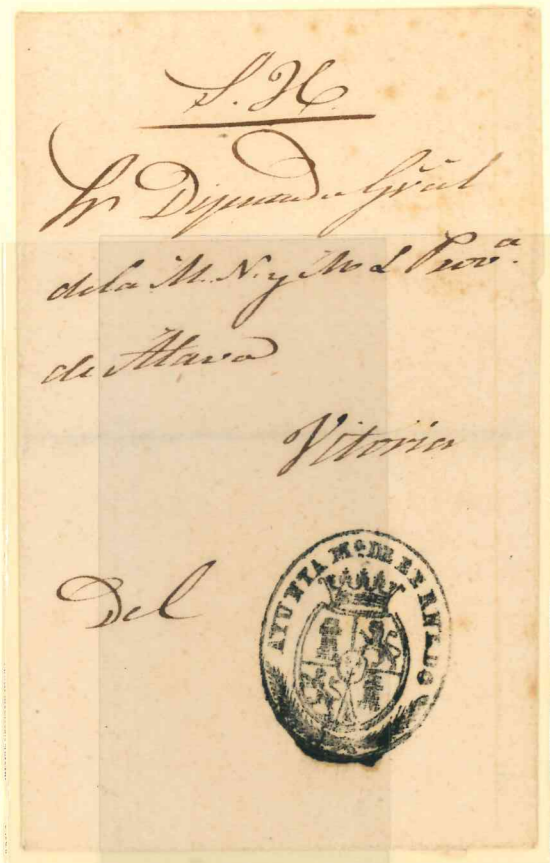 S. N.
Sr Diputado Gral
de la M. N. y M. L. Prova.
de Alava
Vitoria
Del
AYUNTAMo. DE